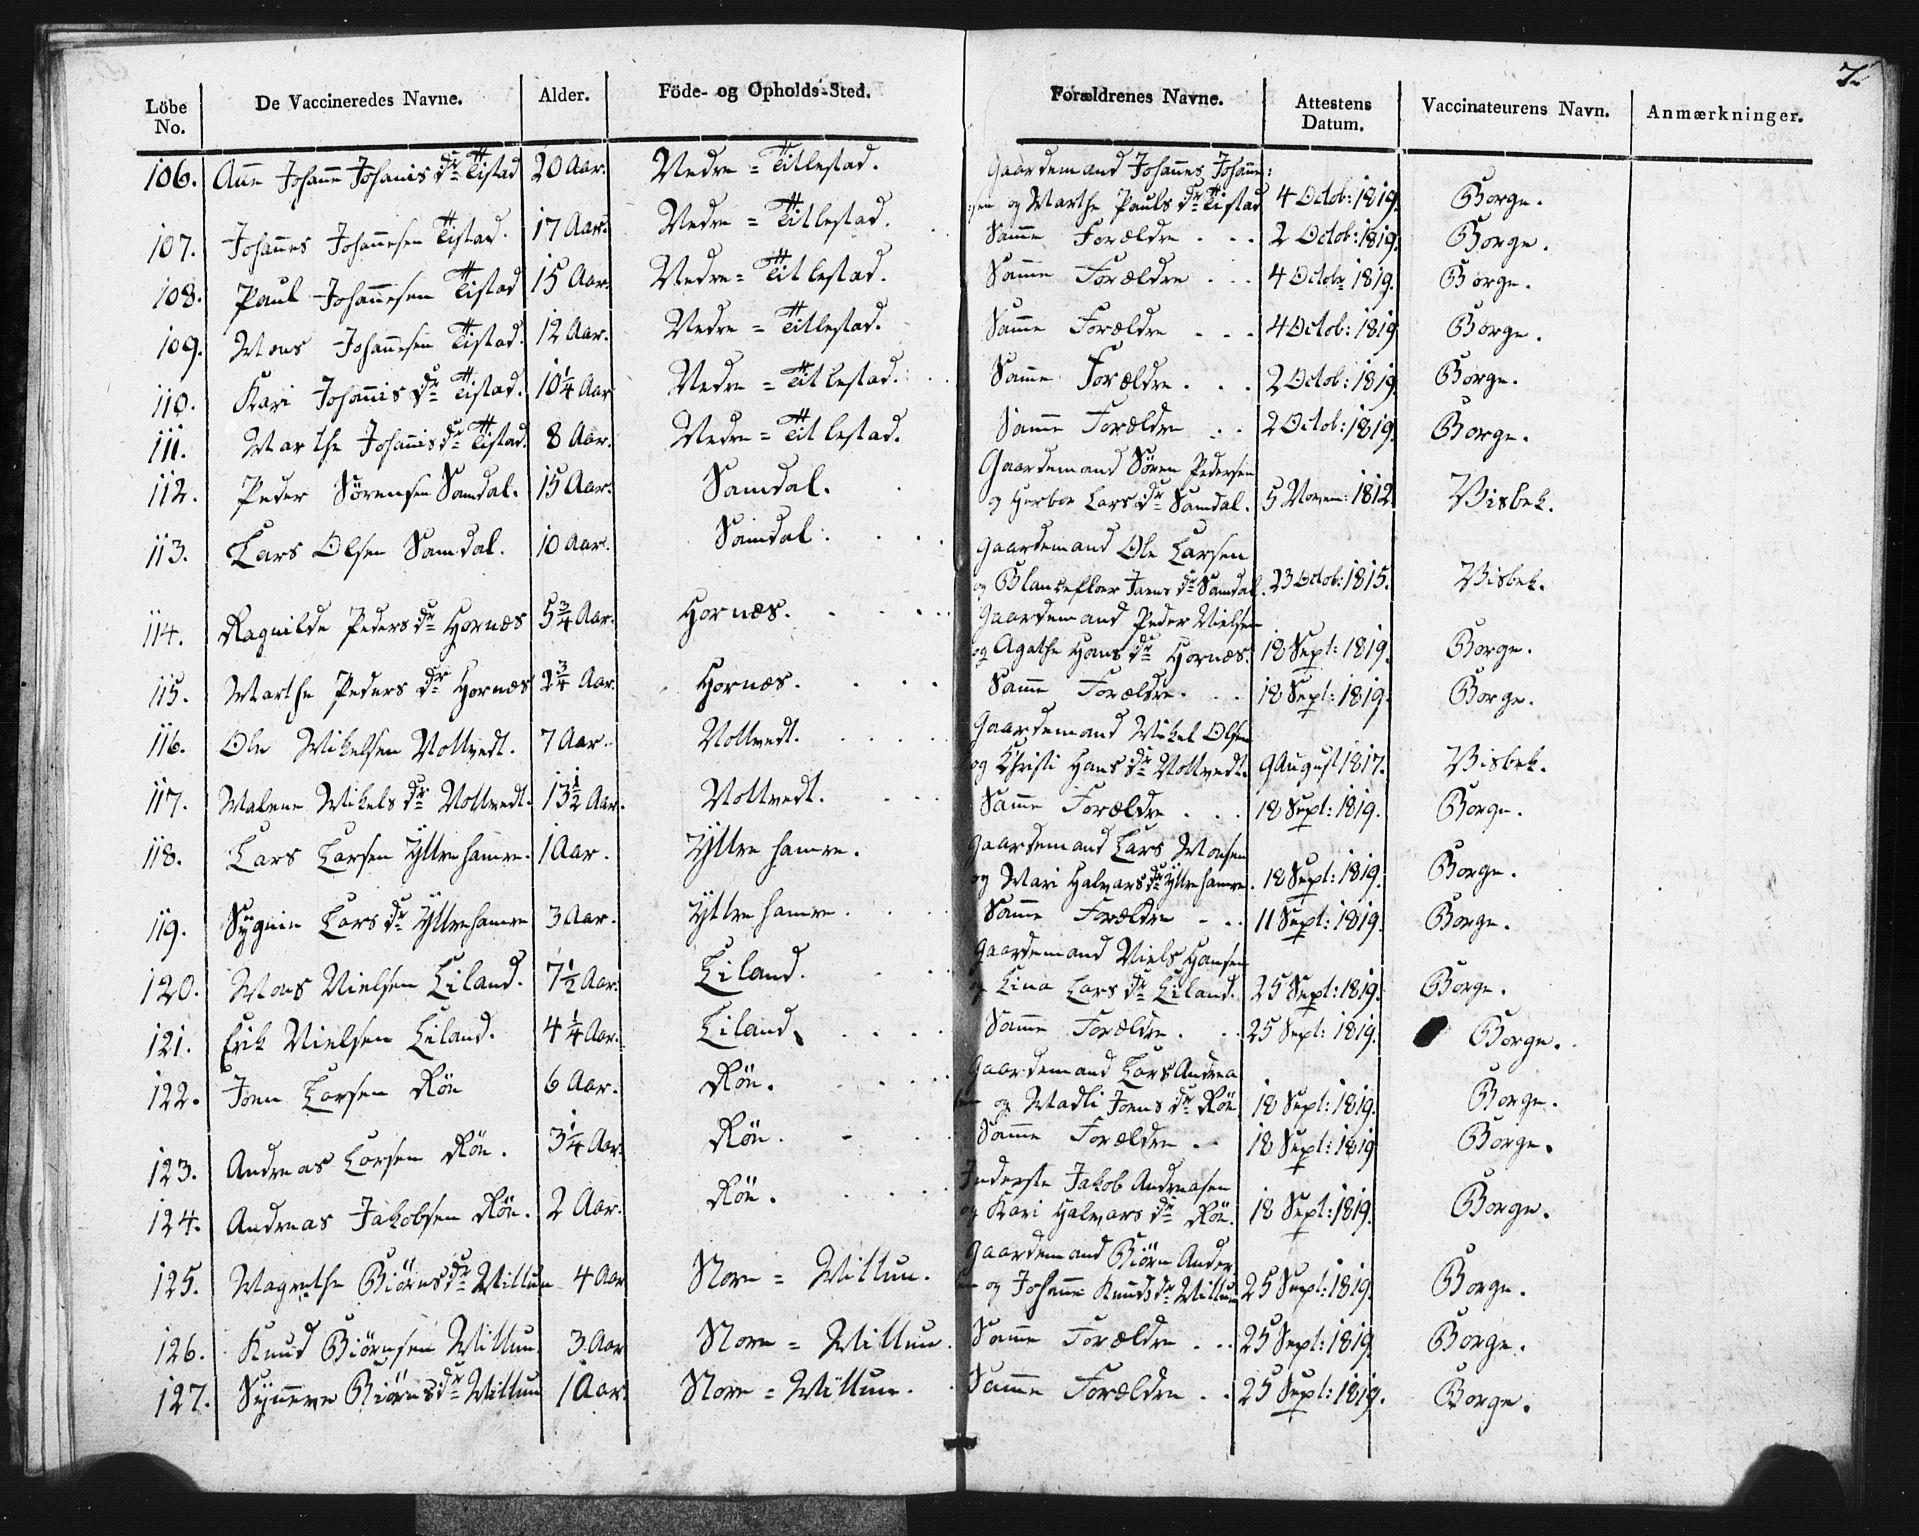 7.
Löbe No. De Vaccineredes Navne. Alder. Föde- og Opholds-Sted. Forældrenes Navne. Attestens Datum. Vaccinateurens Navn. Anmærkninger.
106. Anne Johanne Johanis dr Tistad 20 Aar. Nedre = Titlestad. Gaardemand Johannes Johanne:
sen og Marthe Pauls dr Tistad 4 Octob: 1819. Borge.
107. Johannes Johannesen Tistad. 17 Aar. Nedre = Titlestad. Samme Forældre . . . 2 Octob: 1819. Borge.
108. Paul Johannesen Tistad 15 Aar. Nedre = Titlestad. Samme Forældre . . . 4 Octobr 1819. Borge.
109. Mons Johannesen Tistad. 12 Aar. Nedre = Titlestad. Samme Forældre . . . 4 Octob: 1819. Borge.
110. Kari Johannis dr Tistad. 10 1/4 Aar Nedre = Titlestad. Samme Forældre . . . 2 Octob: 1819. Borge.
111. Marthe Johannis dr Tistad. 8 Aar. Nedre = Titlestad. Samme Forældre . . 2 Octob: 1819. Borge.
112. Peder Sørensen Samdal. 15 Aar. Samdal. Gaardemand Søren Pedersen
og Herboe Lars dr Samdal. 5 Novem: 1812 Visbek.
113. Lars Olsen Samdal. 10 Aar. Samdal. Gaardemand Ole Larsen
og Blancefloer Joens dr Samdal. 23 Octob: 1815. Visbek.
114. Ragnilde Peders dr Hornæs 5 3/4 Aar. Hornæs. Gaardemand Peder Nielsen
og Agathe Hans dr Hornæs. 18 Sept: 1819. Borge.
115. Marthe Peders dr Hornæs 2 3/4 Aar. Hornæs. Samme Forældre. . . 18 Sept: 1819. Borge.
116. Ole Mikelsen Nottvedt. 7 Aar. Nottvedt. Gaardemand Mikel Olsen
og Christi Hans dr Nottvedt. 9 August 1817. Visbek.
117. Malene Mikels dr Nottvedt. 13 1/2 Aar. Nottvedt. Samme Forældre . . . 18 Sept: 1819. Borge.
118. Lars Larsen Yttrehamre. 1 Aar. Yttrehamre. Gaardemand Lars Monsen
og Mari Halvars dr Yttrehamre. 18 Sept: 1819. Borge.
119. Sygnie Lars dr Yttrehamre 3 Aar. Yttrehamre. Samme Forældre . . . 11 Sept: 1819. Borge.
120. Mons Nielsen Liland. 7 1/2 Aar. Liland. Gaardemand Niels Hansen
og Lina Lars dr Liland. 25 Sept: 1819. Borge.
121. Erik Nielsen Liland. 4 1/4 Aar. Liland. Samme Forældre. . . 25 Sept: 1819. Borge.
122. Joen Larsen Røn 6 Aar. Røn. Gaardemand Lars Andrea
sen og Madli Joens dr Røn 18 Sept: 1819. Borge.
123. Andreas Larsen Røn. 3 1/4 Aar. Røn. Samme Forældre . . 18 Sept: 1819 Borge.
124. Andreas Jakobsen Røn. 2 Aar. Røn. Inderste Jakob Andreasen
og Kari Halvars dr Røn. 18 Sept: 1819. Borge.
125. Magrethe Biørns dr Mittun 4 Aar Store = Mittun. Gaardemand Biørn Ander
sen og Johanne Knuds dr Mittun 25 Sept: 1819. Borge.
126. Knud Biørnsen Mittun. 3 Aar Store = Mittun. Samme Forældre . . . 25 Sept: 1819. Borge.
127. Synneve Biørns dr Mittun 1 Aar. Store = Mittun. Samme Forældre . . 25 Sept: 1819. Borge.